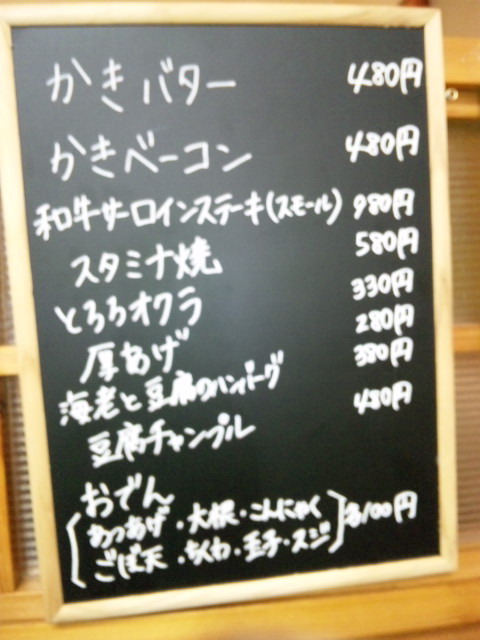 かきバター 480円
かきベーコン 480円
和牛サーロインステーキ(スモール) 980円
スタミナ焼 580円
とろろオクラ 330円
厚あげ 280円
海老と豆腐のハンバーグ 380円
豆腐チャンプル 480円
おでん
[あつあげ・大根・こんにゃく
ごぼ天・ちくわ・玉子・スジ]各100円